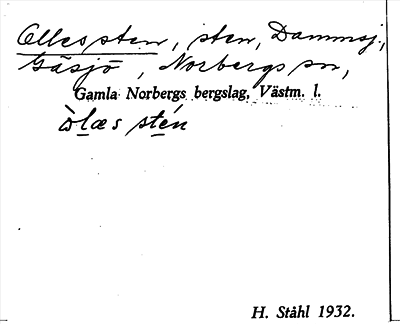 Ollessten, sten, Dammsj.,
Gäsjö, Norbergs sn,
Gamla Norbergs bergslag, Västm. l.
òlæs stén
H. Ståhl 1932.